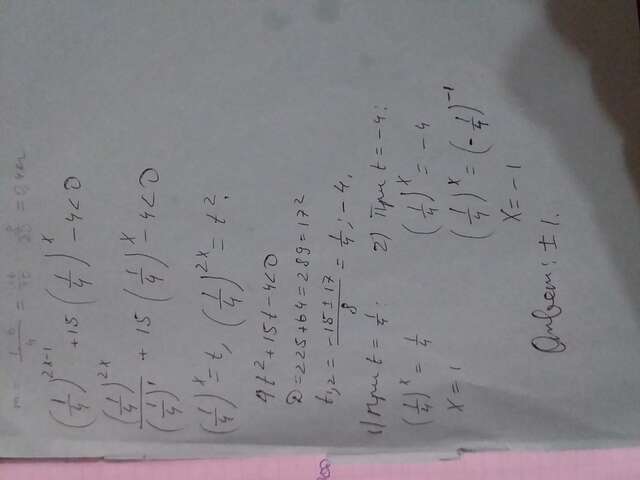 (1/4)^(2x-1) + 15(1/4)^x - 4 < 0
(1/4)^(2x) / (1/4)^1 + 15(1/4)^x - 4 < 0
(1/4)^x = t, (1/4)^(2x) = t².
4t² + 15t - 4 < 0
D = 225 + 64 = 289 = 17²
t₁,₂ = (-15 ± 17)/8 = 1/4; -4.
1) При t = 1/4: 2) При t = -4:
(1/4)^x = 1/4 (1/4)^x = -4
x = 1 (1/4)^x = (-1/4)^(-1)
x = -1
Ответ: ±1.